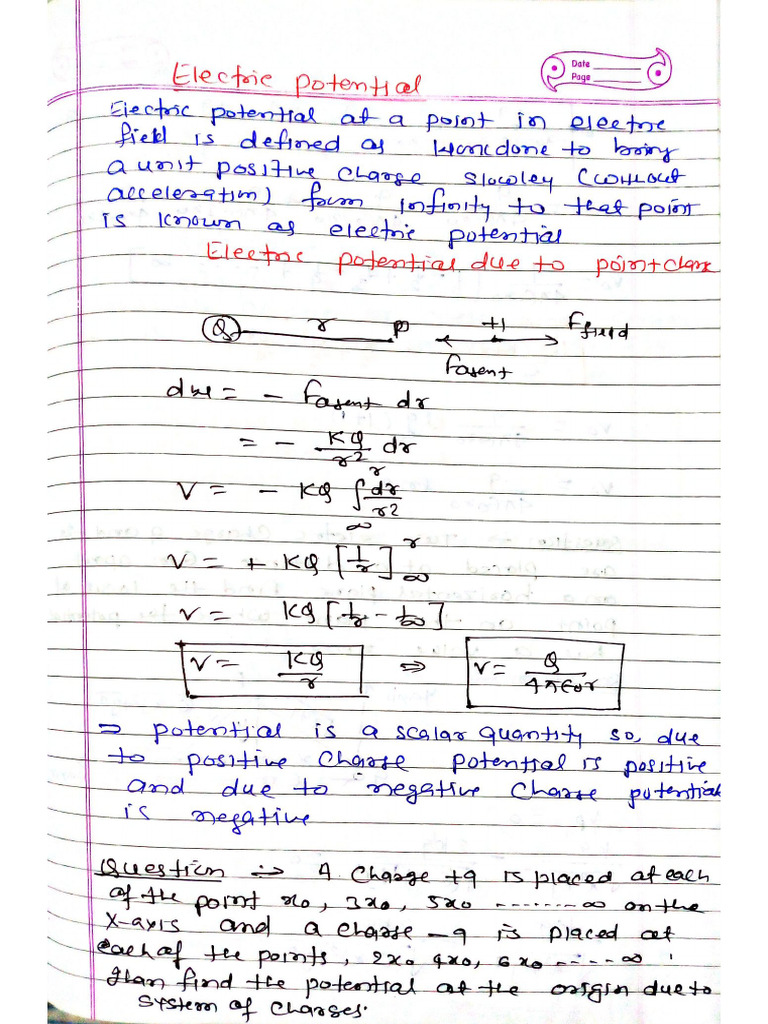 Date
Page
Electric potential
Electric potential at a point in electric
field is defined as workdone to bring
a unit positive charge slowley (without
acceleration) form infinity to that point
is known as electric potential
Electric potential due to point charge
Q r P +1 Ffield
Fagent
dw = - Fagent dr
= - KQ/r² dr
V = - KQ ∫∞^r dr/r2
V = + KQ [1/r]∞^r
V = KQ [1/r - 1/∞]
V = KQ/r ⇒ V = Q/4π∈0r
⇒ potential is a scalar quantity so, due
to positive charge potential is positive
and due to negative charge potential
is negative
Question ⇒ A charge +q is placed at each
of the point x0, 3x0, 5x0 ------- ∞ on the
X-axis and a charge -q is placed at
each of the points, 2x0 4x0, 6x0 ----- ∞
than find the potential at the origin due to
system of charges.